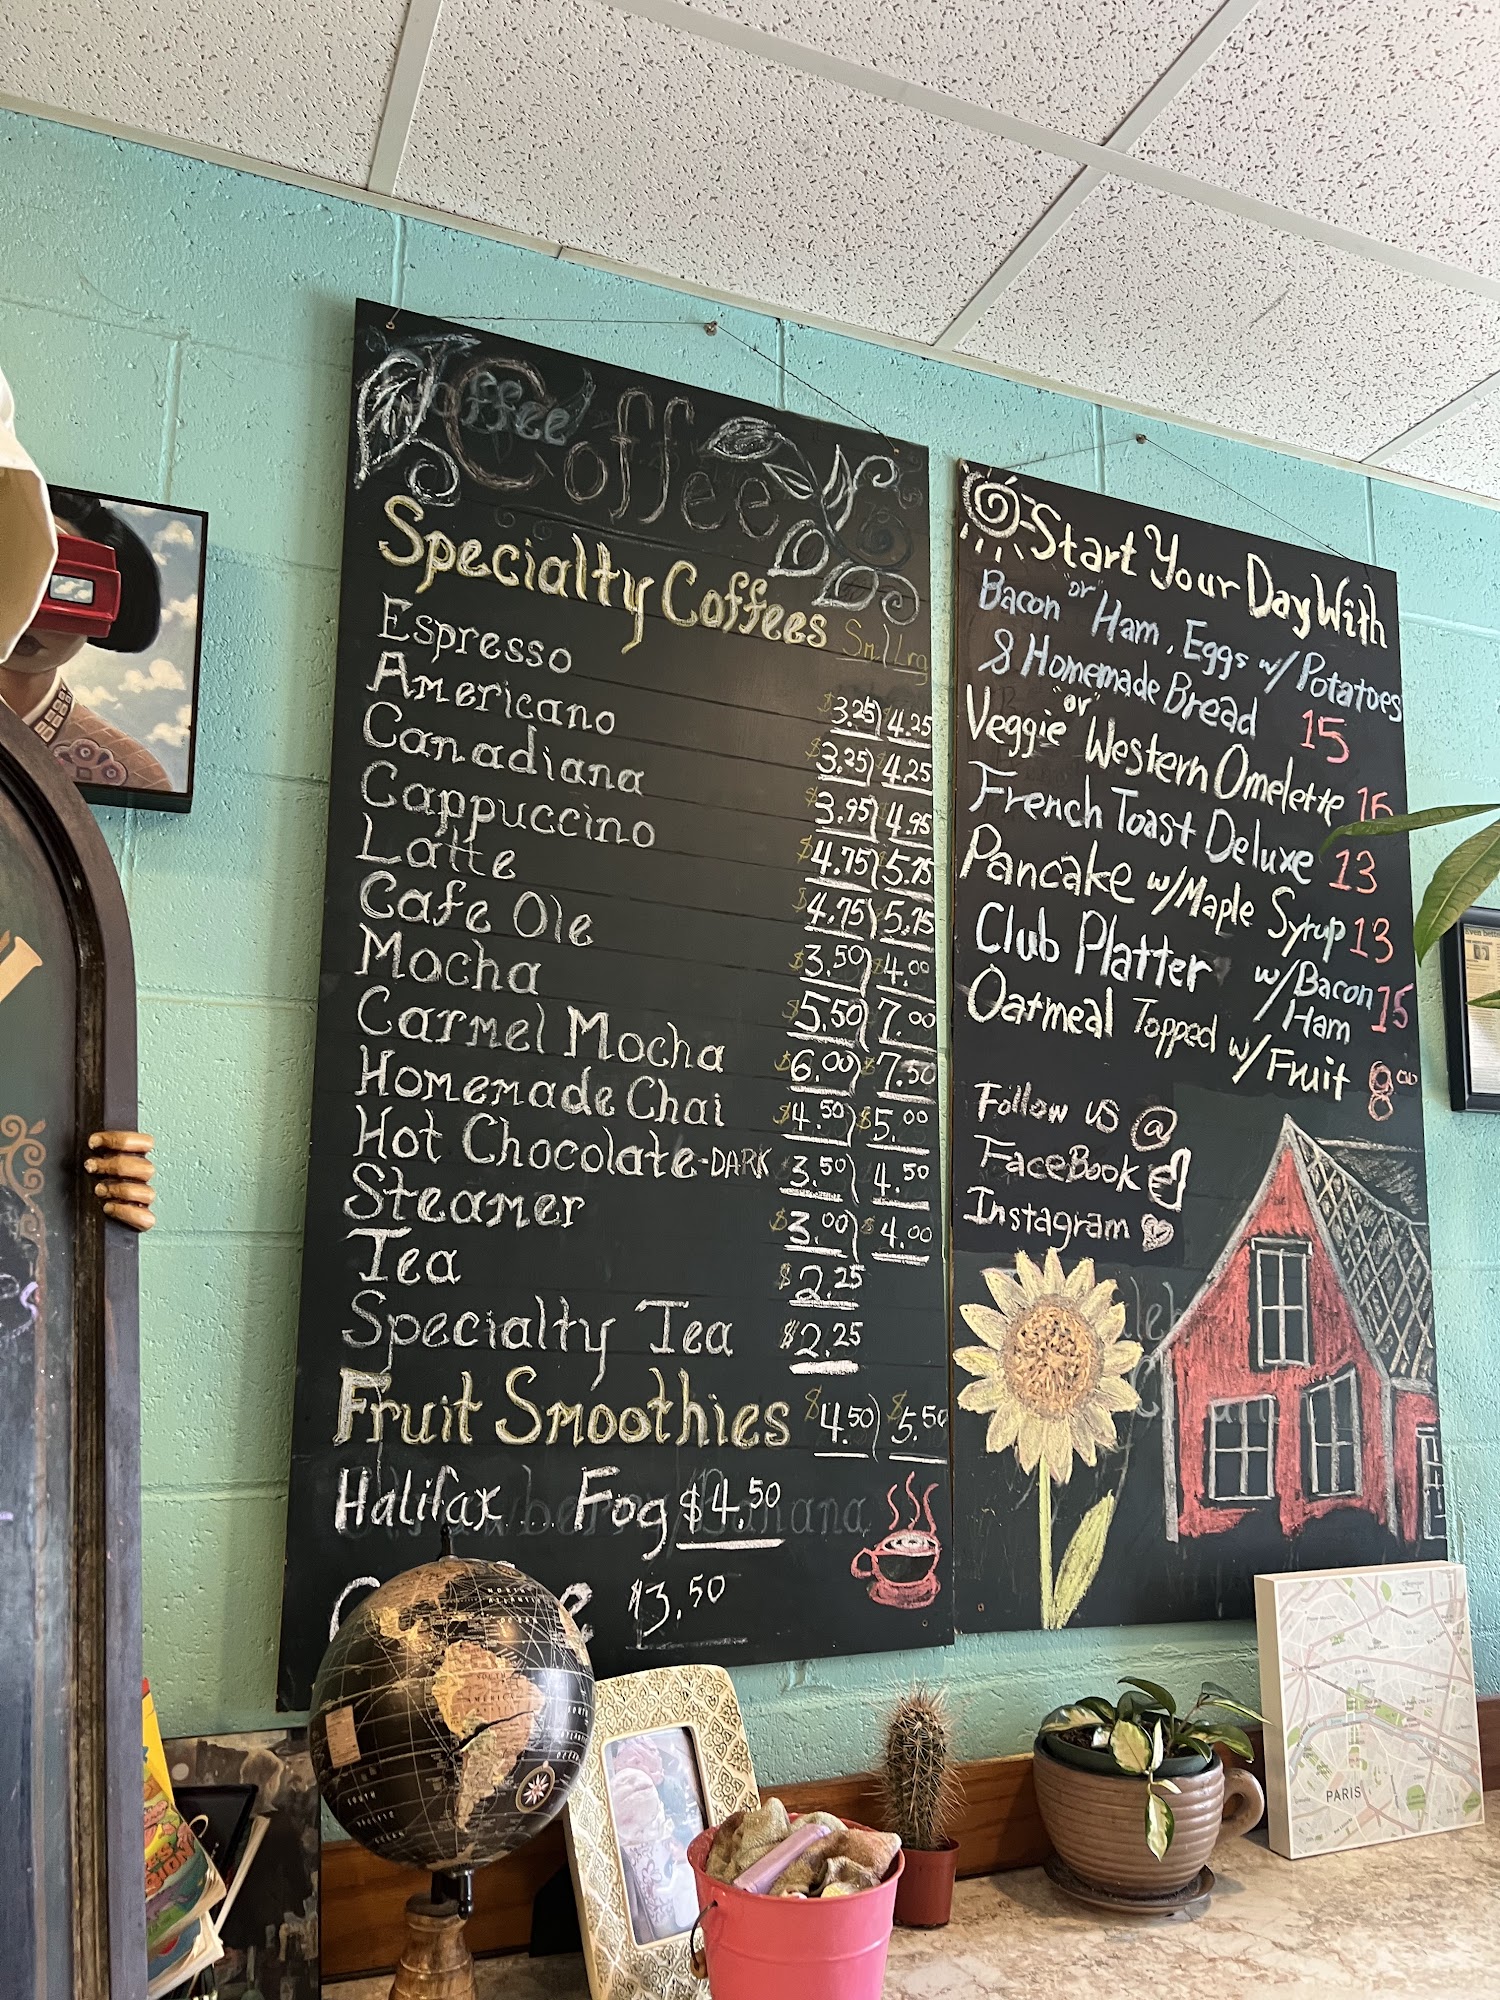 Coffee
Coffee
Specialty Coffees Sm/Lrg
Espresso $3.25) 4.25
Americano $3.25) 4.25
Canadiana $3.95) 4.95
Cappuccino $4.75) 5.75
Latte $4.75) 5.75
Cafe Ole $3.50) $4.00
Mocha $5.50) 7.00
Carmel Mocha $6.00) $7.50
Homemade Chai $4.50) $5.00
Hot Chocolate-DARK 3.50) 4.50
Steamer $3.00) $4.00
Tea $2.25
Specialty Tea $2.25
Fruit Smoothies $4.50) $5.50
Halifax Fog $4.50
$3.50
Start Your Day With
Bacon "or" Ham, Eggs w/ Potatoes
& Homemade Bread 15
Veggie "or" Western Omelette
French Toast Deluxe 13
Pancake w/Maple Syrup 13
Club Platter w/Bacon 15
Ham
Oatmeal Topped w/Fruit 8.00
Follow us @
FaceBook
Instagram
PARIS